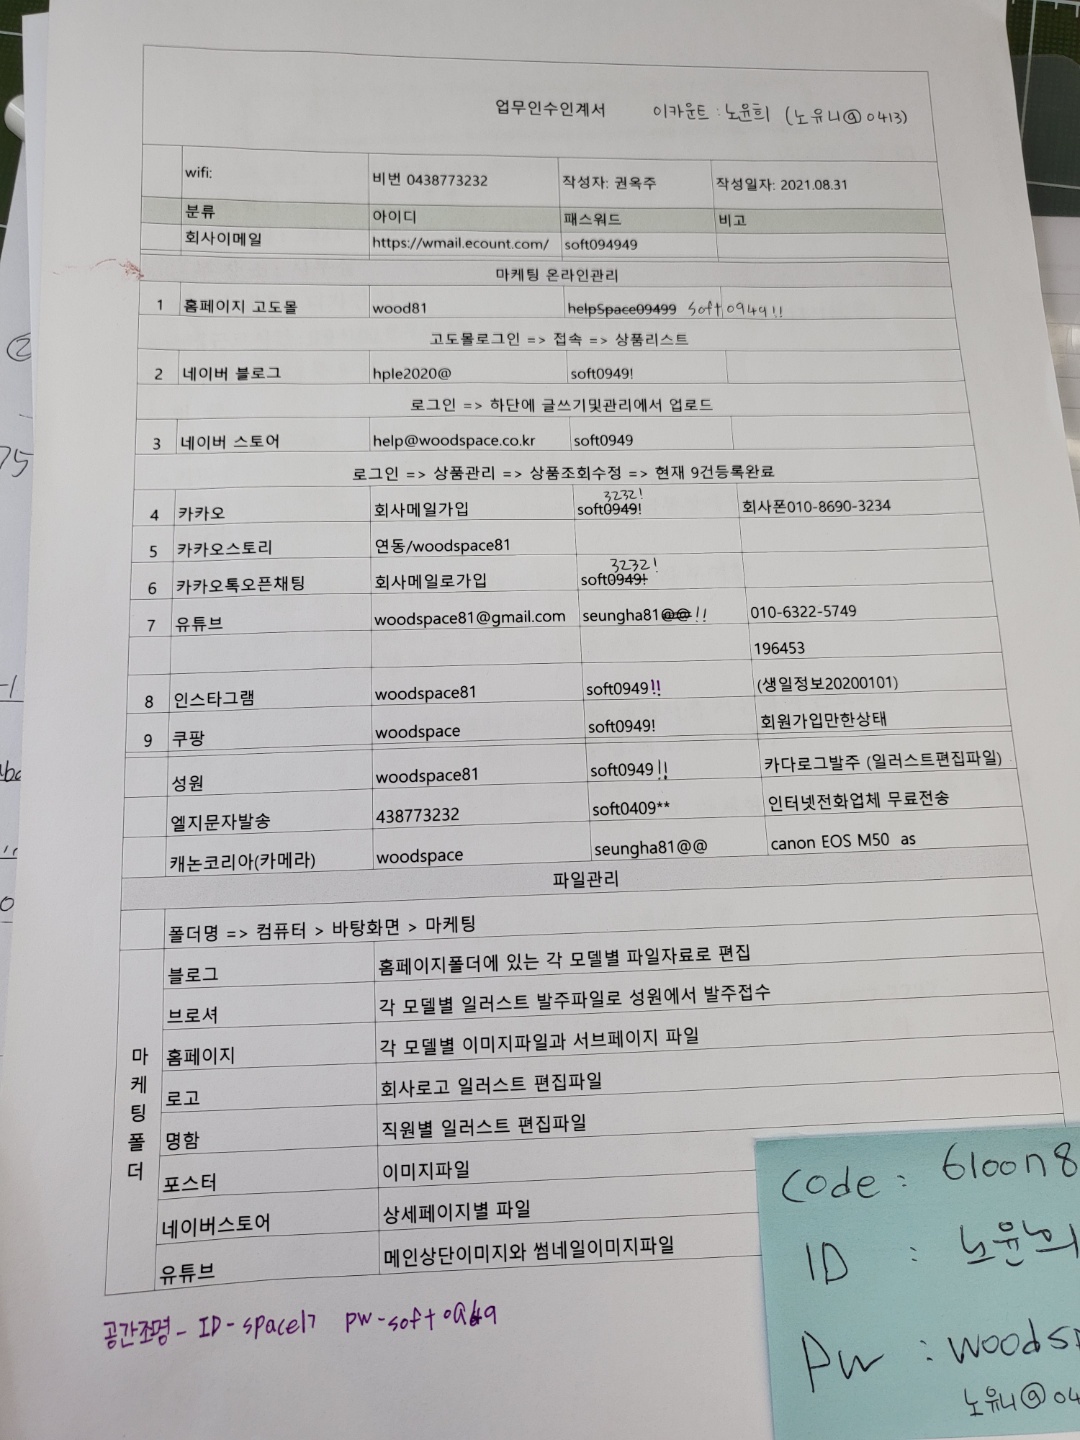 업무인수인계서 이카운트 : 노윤희 (노유니@0413)
wifi: 비번 0438773232 작성자: 권옥주 작성일자: 2021.08.31
분류 아이디 패스워드 비고
회사이메일 https://wmail.ecount.com/ soft094949
마케팅 온라인관리
1 홈페이지 고도몰 wood81 helpSpace09499 soft0949!!
고도몰로그인 => 접속 => 상품리스트
2 네이버 블로그 hple2020@ soft0949!
로그인 => 하단에 글쓰기및관리에서 업로드
3 네이버 스토어 help@woodspace.co.kr soft0949
로그인 => 상품관리 => 상품조회수정 => 현재 9건등록완료
3232!
4 카카오 회사메일가입 soft0949! 회사폰010-8690-3234
5 카카오스토리 연동/woodspace81
3232!
6 카카오톡오픈채팅 회사메일로가입 soft0949!
7 유튜브 woodspace81@gmail.com seungha81@@!! 010-6322-5749
196453
8 인스타그램 woodspace81 soft0949!! (생일정보20200101)
9 쿠팡 woodspace soft0949! 회원가입만한상태
성원 woodspace81 soft0949!! 카다로그발주 (일러스트편집파일)
엘지문자발송 438773232 soft0409** 인터넷전화업체 무료전송
캐논코리아(카메라) woodspace seungha81@@ canon EOS M50 as
파일관리
폴더명 => 컴퓨터 > 바탕화면 > 마케팅
마케팅폴더
블로그 홈페이지폴더에 있는 각 모델별 파일자료로 편집
브로셔 각 모델별 일러스트 발주파일로 성원에서 발주접수
홈페이지 각 모델별 이미지파일과 서브페이지 파일
로고 회사로고 일러스트 편집파일
명함 직원별 일러스트 편집파일
포스터 이미지파일
네이버스토어 상세페이지별 파일
유튜브 메인상단이미지와 썸네일이미지파일
공간조명 - ID - space17 pw - soft0949
Code : 610on8
ID : 노윤희
Pw : woodsp
노유니@04